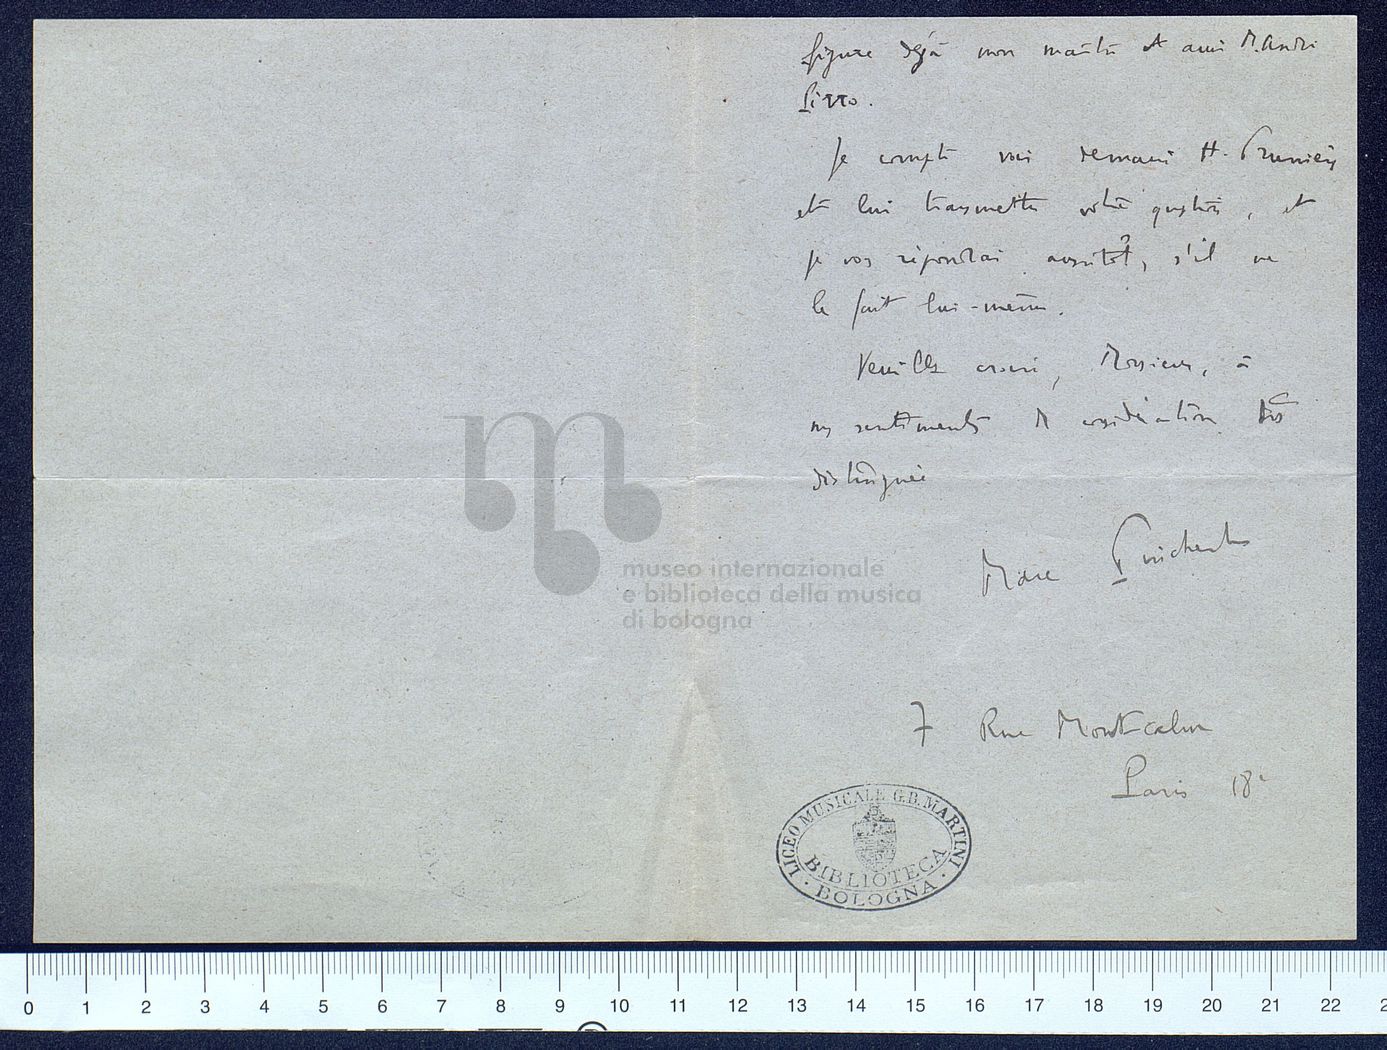 figure déjà mon maître et ami M. André
Pirro.
Je compte voir demain H. Prunières
et lui transmettre votre question, et
je vous répondrai aussitôt, s'il ne
le fait lui-même.
Veuillez croire, Monsieur, à
mes sentiments de considération très
distinguée
Marc Pincherle
7 Rue Montcalm
Paris 18e
museo internazionale
e biblioteca della musica
di bologna
LICEO MUSICALE G.B. MARTINI
BIBLIOTECA
BOLOGNA
0 1 2 3 4 5 6 7 8 9 10 11 12 13 14 15 16 17 18 19 20 21 22